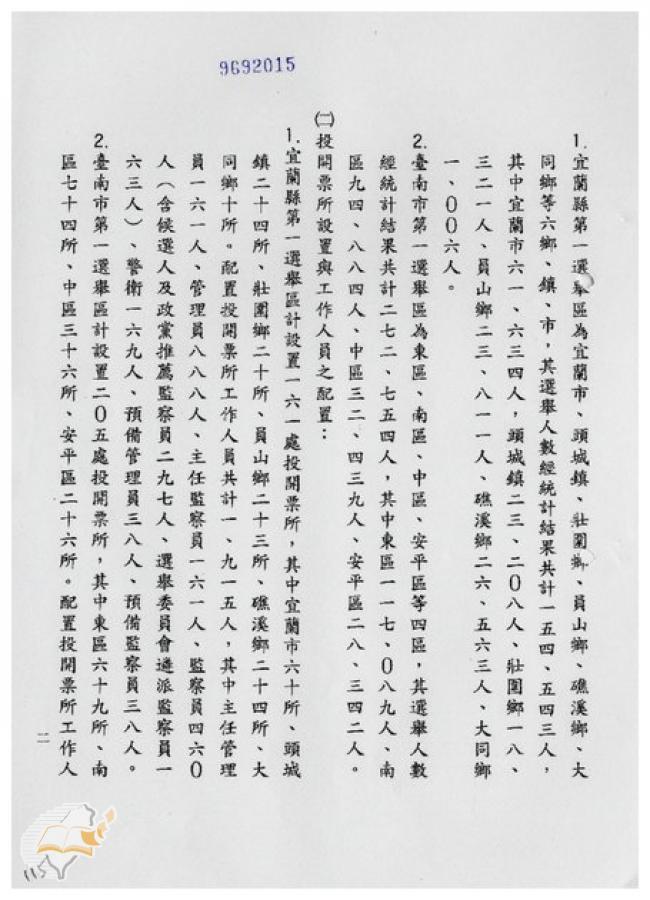 9692015
1.宜蘭縣第一選舉區為宜蘭市、頭城鎮、壯圍鄉、員山鄉、礁溪鄉、大
同鄉等六鄉、鎮、市，其選舉人數經統計結果共計一五四、五四三人，
其中宜蘭市六一、六三四人，頭城鎮二三、二０八人、壯圍鄉一八、
三二一人、員山鄉二三、八一一人、礁溪鄉二六、五六三人、大同鄉
一、００六人。
2.臺南市第一選舉區為東區、南區、中區、安平區等四區，其選舉人數
經統計結果共計二七二、七五四人，其中東區一一七、０八九人、南
區九四、八八四人、中區三二、四三九人、安平區二八、三四二人。
㈡投開票所設置與工作人員之配置：
1.宜蘭縣第一選舉區計設置一六一處投開票所，其中宜蘭市六十所、頭城
鎮二十四所、壯圍鄉二十所、員山鄉二十三所、礁溪鄉二十四所、大
同鄉十所。配置投開票所工作人員共計一、九一五人，其中主任管理
員一六一人、管理員八八八人、主任監察員一六一人、監察員四六０
人（含候選人及政黨推薦監察員二九七人、選舉委員會遴派監察員一
六三人）、警衛一六九人、預備管理員三八人、預備監察員三八人。
2.臺南市第一選舉區計設置二０五處投開票所，其中東區六十九所、南
區七十四所、中區三十六所、安平區二十六所。配置投開票所工作人
二
115